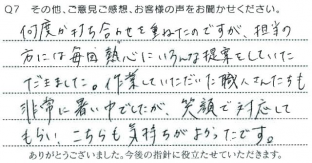 Q7 その他、ご意見ご感想、お客様の声をお聞かせください。
何度か打ち合わせを重ねたのですが、担当の
方には毎回熱心にいろんな提案をしていた
だきました。作業していただいた職人さんたちも
非常に暑い中でしたが、笑顔で対応して
もらい、こちらも気持ちがよかったです。
ありがとうございました。今後の指針に役立たせていただきます。